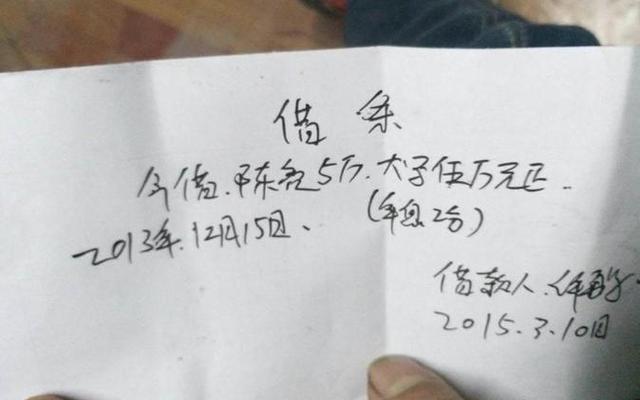 借条
今借.陈 5万.大字伍万元正.
2013年.12月15日、(年息2分)
借款人.
2015.3.10日